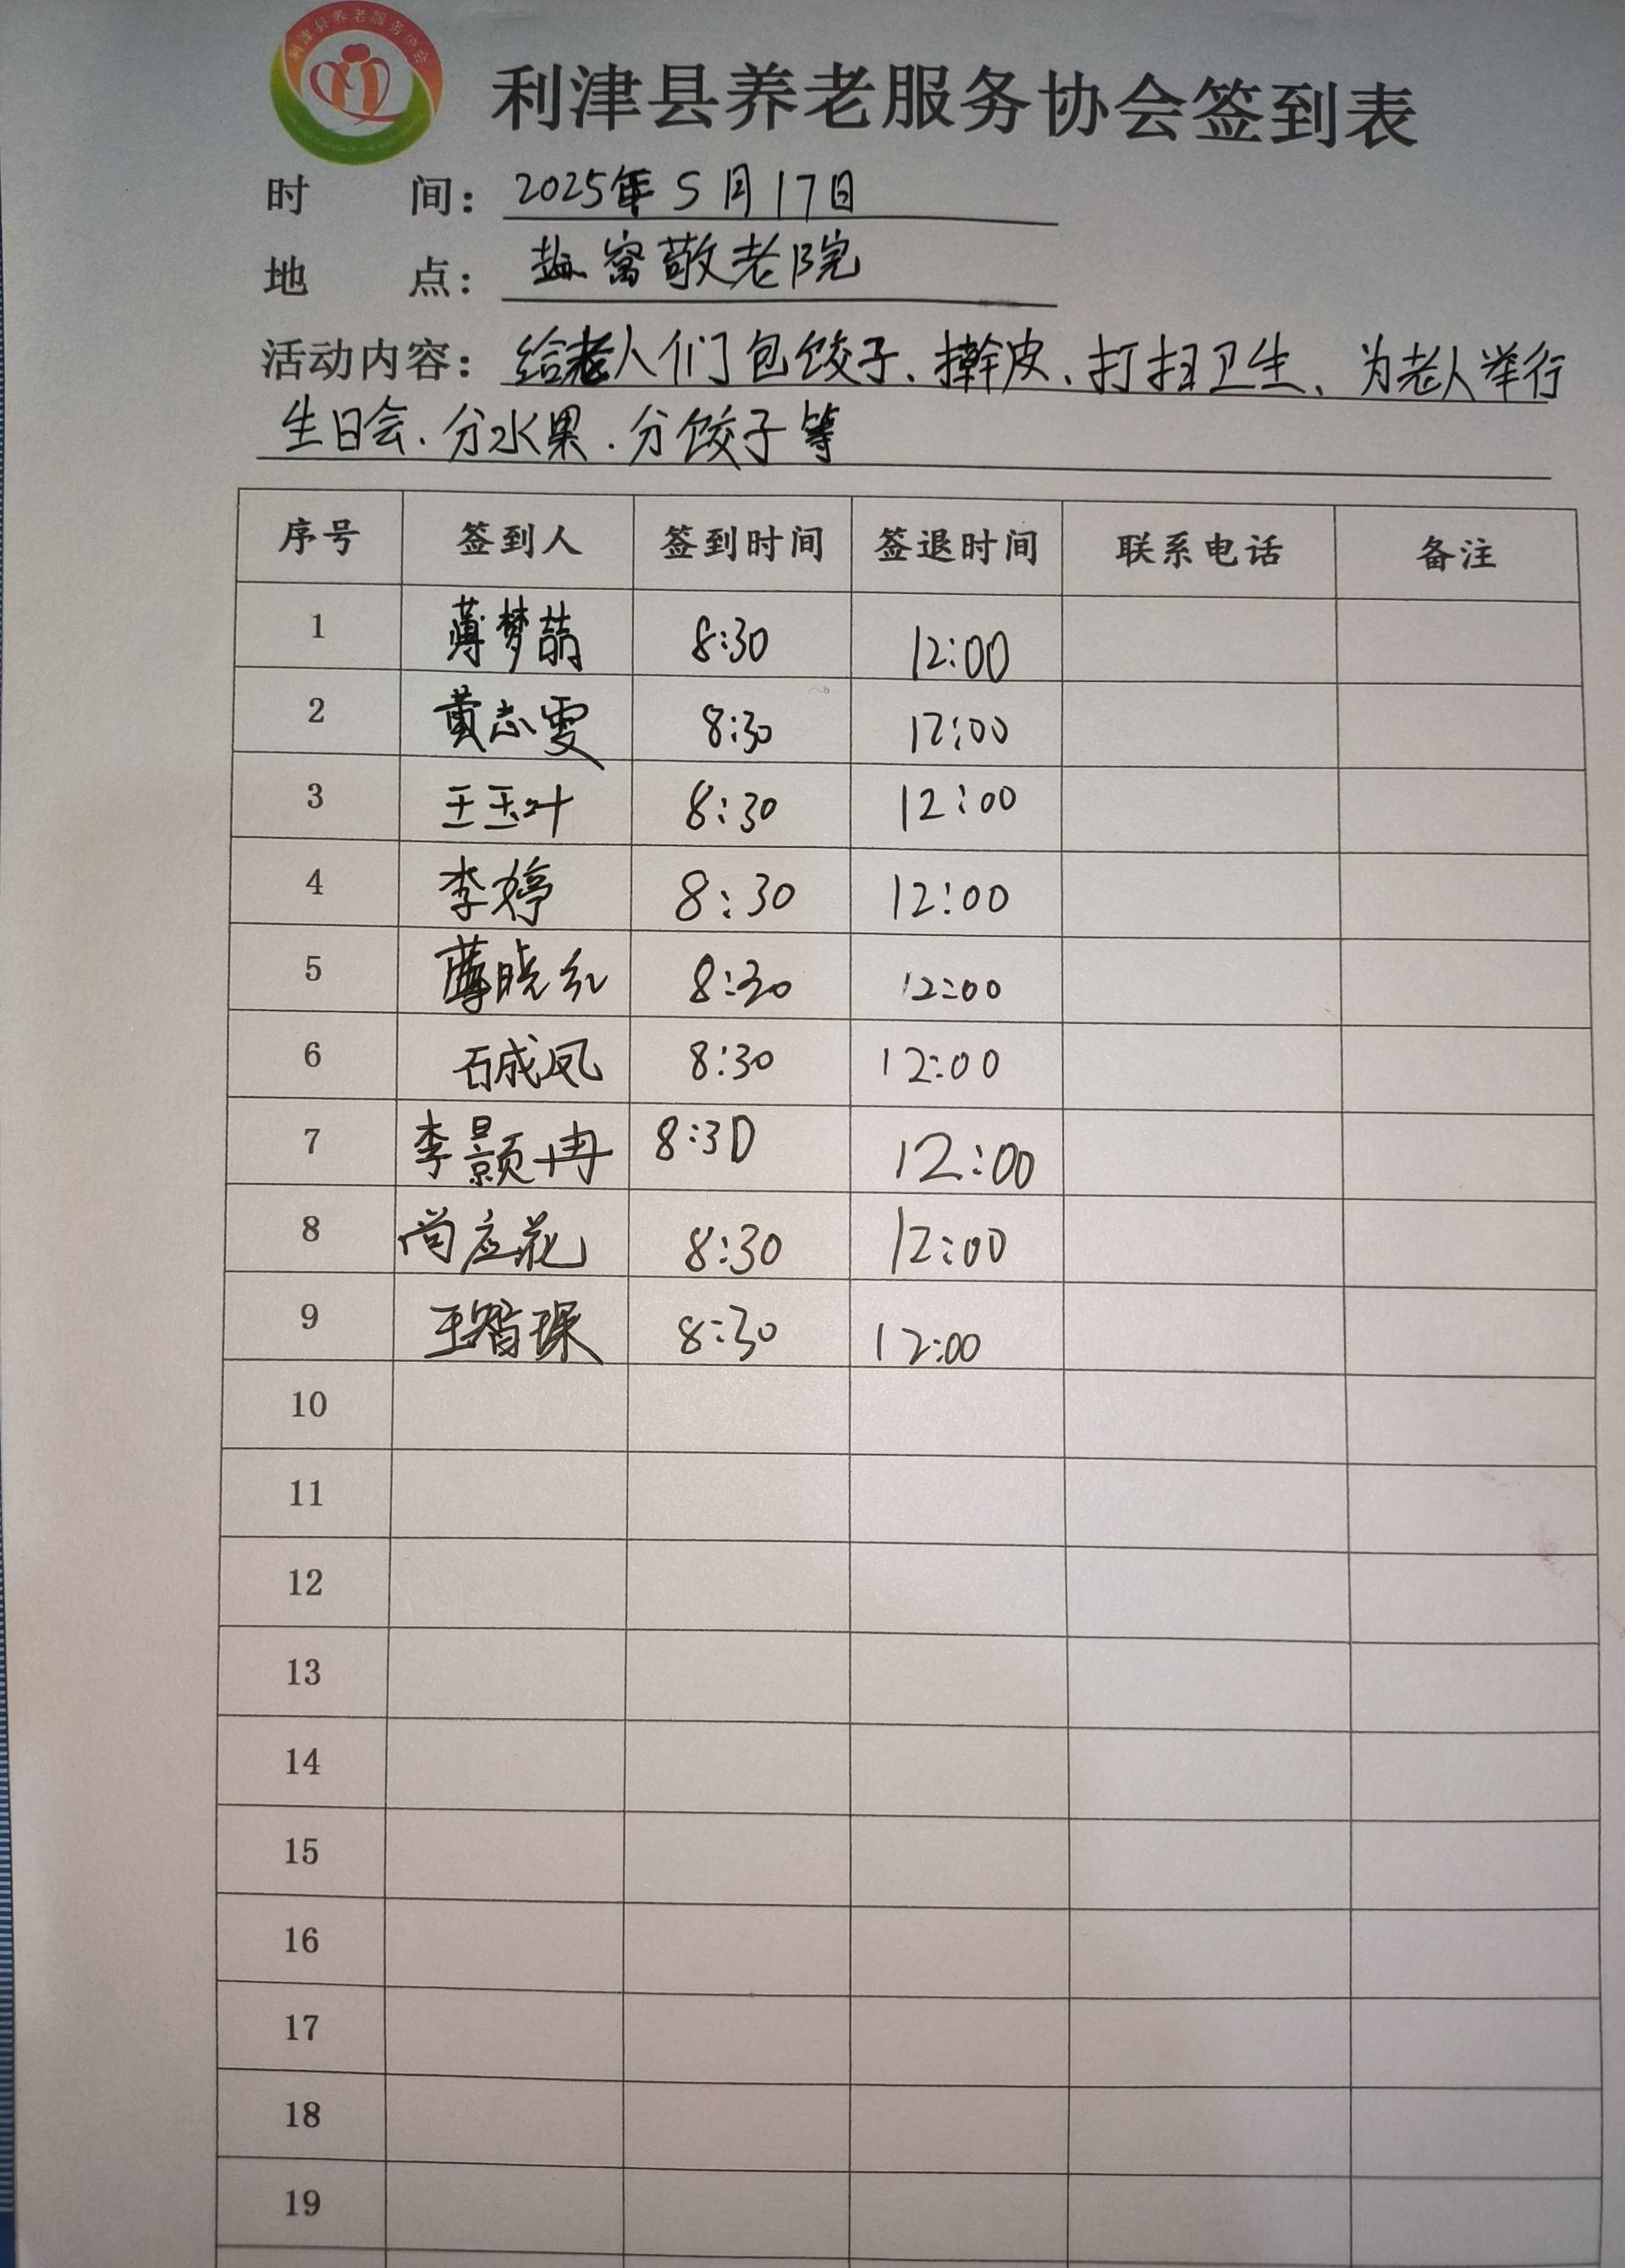 利津县养老服务协会
利津县养老服务协会签到表
时 间: 2025年5月17日
地 点: 盐窝敬老院
活动内容: 给老人们包饺子、擀皮、打扫卫生、为老人举行
生日会、分水果、分饺子等
序号 签到人 签到时间 签退时间 联系电话 备注
1 薄梦喆 8:30 12:00
2 黄志雯 8:30 12:00
3 王玉叶 8:30 12:00
4 李婷 8:30 12:00
5 薄晓红 8:30 12:00
6 石成凤 8:30 12:00
7 李颢冉 8:30 12:00
8 尚应花 8:30 12:00
9 王智琛 8:30 12:00
10
11
12
13
14
15
16
17
18
19